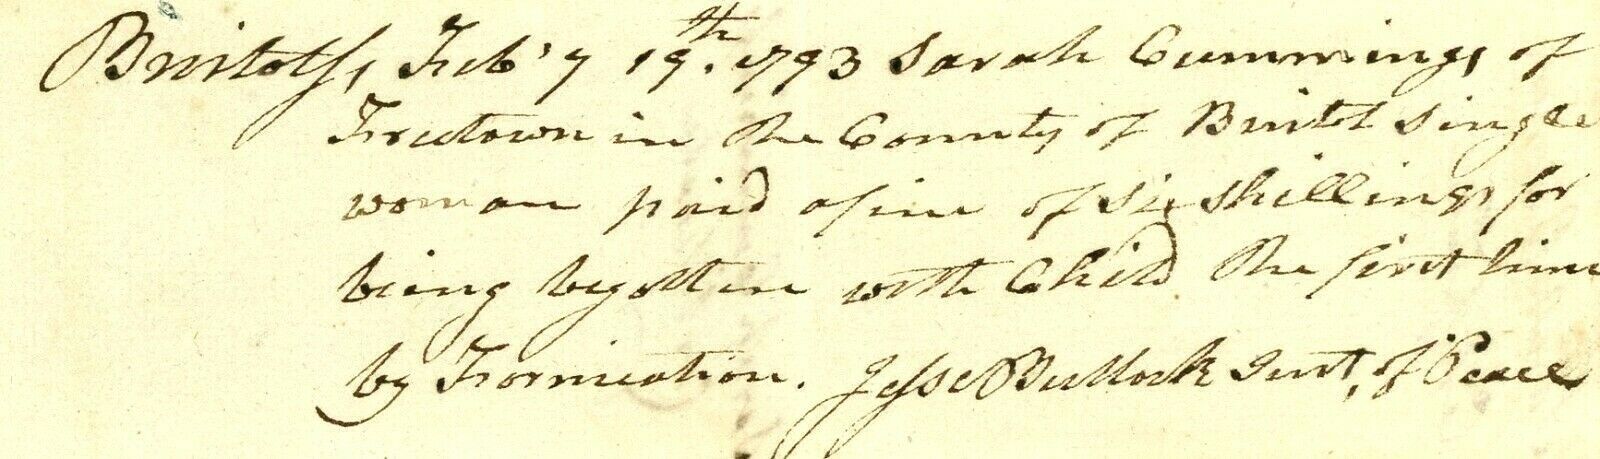 Bristol ss, Feb'y 19th. 1793 Sarah Cummings of
Freetown in the County of Bristol Single
woman paid a fine of six shillings for
being begotten with Child the first time
by Fornication. Jesse Bullock Just, of Peace